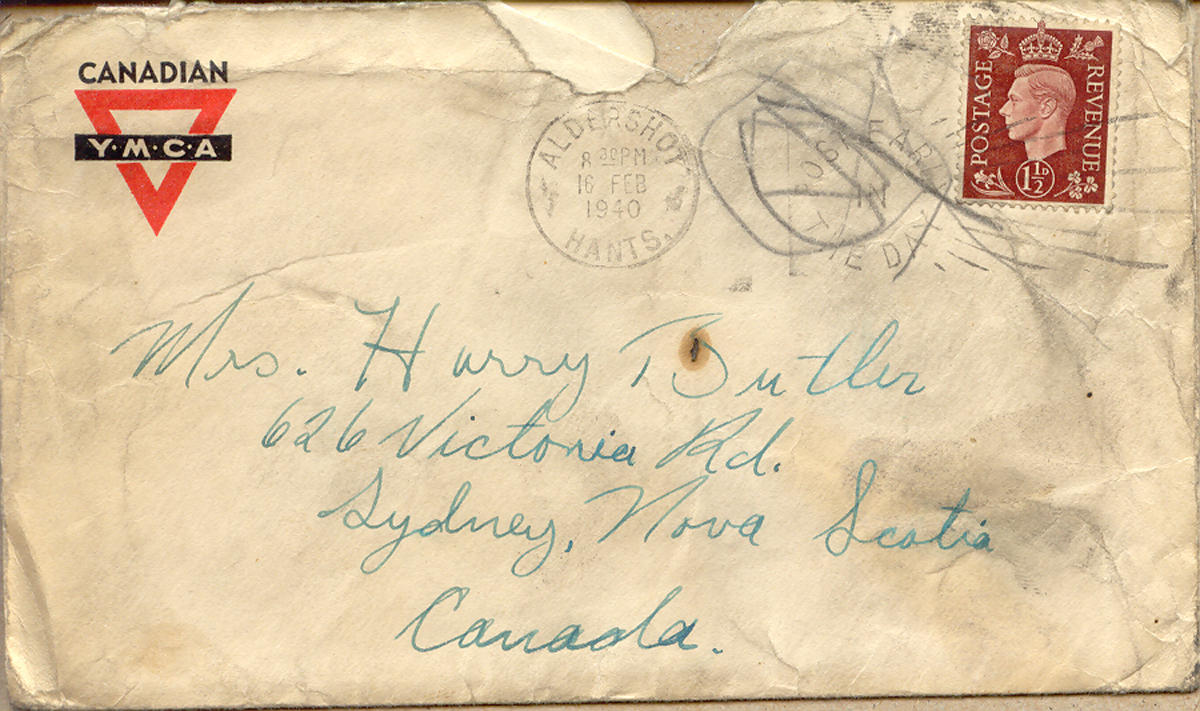 CANADIAN
Y·M·C·A
ALDERSHOT
8 30PM
16 FEB
1940
HANTS.
POST EARLY
IN
THE DAY
POSTAGE
REVENUE
1½D
Mrs. Harry Butler
626 Victoria Rd.
Sydney, Nova Scotia
Canada.